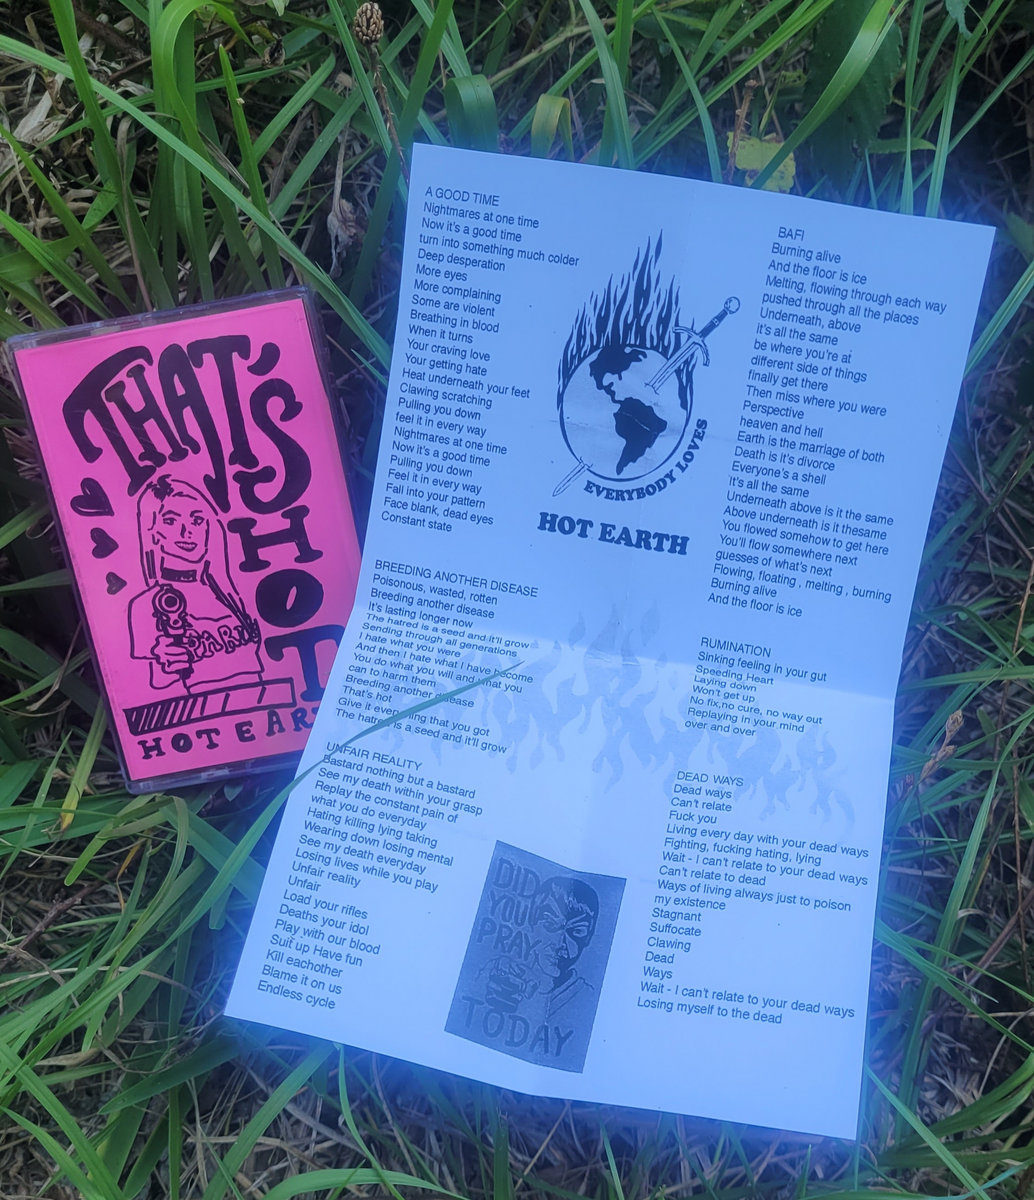 THAT'S
HOT
PARIS
HOT EAR
A GOOD TIME
Nightmares at one time
Now it's a good time
turn into something much colder
Deep desperation
More eyes
More complaining
Some are violent
Breathing in blood
When it turns
Your craving love
Your getting hate
Heat underneath your feet
Clawing scratching
Pulling you down
feel it in every way
Nightmares at one time
Now it's a good time
Pulling you down
Feel it in every way
Fall into your pattern
Face blank, dead eyes
Constant state
BREEDING ANOTHER DISEASE
Poisonous, wasted, rotten
Breeding another disease
It's lasting longer now
The hatred is a seed and it'll grow
Sending through all generations
I hate what you were
And then I hate what I have become
You do what you will and what you
can to harm them
Breeding another disease
That's hot
Give it everything that you got
The hatred is a seed and it'll grow
UNFAIR REALITY
Bastard nothing but a bastard
See my death within your grasp
Replay the constant pain of
what you do everyday
Hating killing lying taking
Wearing down losing mental
See my death everyday
Losing lives while you play
Unfair reality
Unfair
Load your rifles
Deaths your idol
Play with our blood
Suit up Have fun
Kill eachother
Blame it on us
Endless cycle
EVERYBODY LOVES
HOT EARTH
DID
YOU
PRAY
TODAY
BAFI
Burning alive
And the floor is ice
Melting, flowing through each way
pushed through all the places
Underneath, above
it's all the same
be where you're at
different side of things
finally get there
Then miss where you were
Perspective
heaven and hell
Earth is the marriage of both
Death is it's divorce
Everyone's a shell
It's all the same
Underneath above is it the same
Above underneath is it thesame
You flowed somehow to get here
You'll flow somewhere next
guesses of what's next
Flowing, floating , melting , burning
Burning alive
And the floor is ice
RUMINATION
Sinking feeling in your gut
Speeding Heart
Laying down
Won't get up
No fix,no cure, no way out
Replaying in your mind
over and over
DEAD WAYS
Dead ways
Can't relate
Fuck you
Living every day with your dead ways
Fighting, fucking hating, lying
Wait - I can't relate to your dead ways
Can't relate to dead
Ways of living always just to poison
my existence
Stagnant
Suffocate
Clawing
Dead
Ways
Wait - I can't relate to your dead ways
Losing myself to the dead